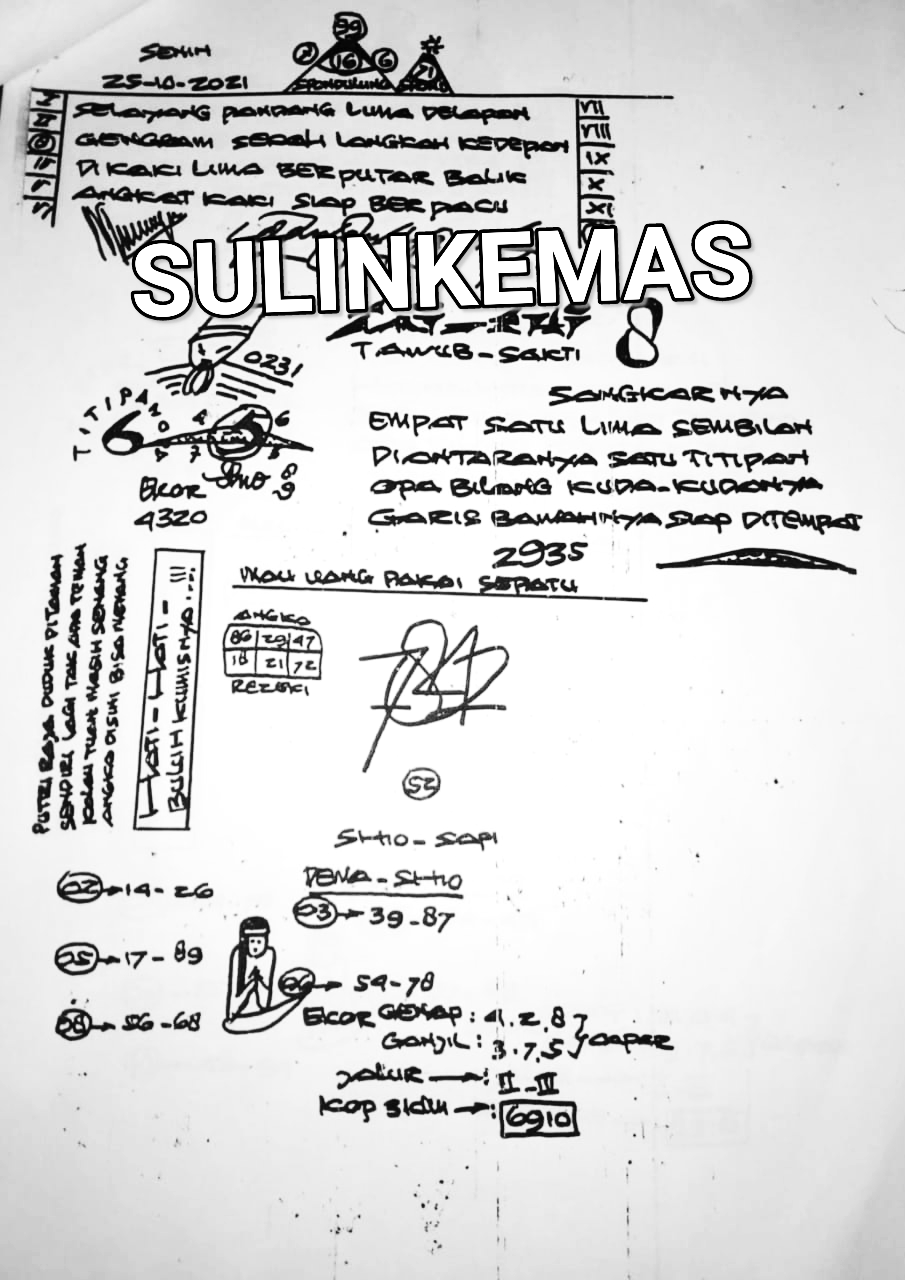 SENIN
25-10-2021
99
2
16
6
71
SELAYANG PANDANG LIMA DELAPAN
GENGRAM SERAH LANGKAH KEDEPAN
DI KAKI LIMA BERPUTAR BALIK
ANGKAT KAKI SIAP BERPACU
VII
VIII
IX
X
XI
SULINKEMAS
8
TAWUB-SAKTI
0231
TITIPAN
6
SANGKARNYA
EMPAT SATU LIMA SEMBILAN
DIANTARANYA SATU TITIPAN
APA BILANG KUDA-KUDANYA
GARIS BAWAHNYA SIAP DITEMPAT
EKOR
4320
2935
MAU UANG PAKAI SEPATU
ANGKA
86 29 47
18 21 72
REZEKI
PUTRI RAJA DUDUK DITAMAN
SENDIRI LAGI TAK ADA TEMAN
KALAU TUAN MASIH SENANG
ANGKA DISINI BISA MENANG
HATI-HATI-
BULIH KUMISNYA...!!!
25
SHIO-SAPI
DENA-SHIO
02 → 14-26
03 → 39-87
05 → 17-89
06 → 54-78
08 → 56-68
EKOR GENAP : 4.2.8
GANJIL : 3.7.5
JALUR → : II-III
KOP → : 6910